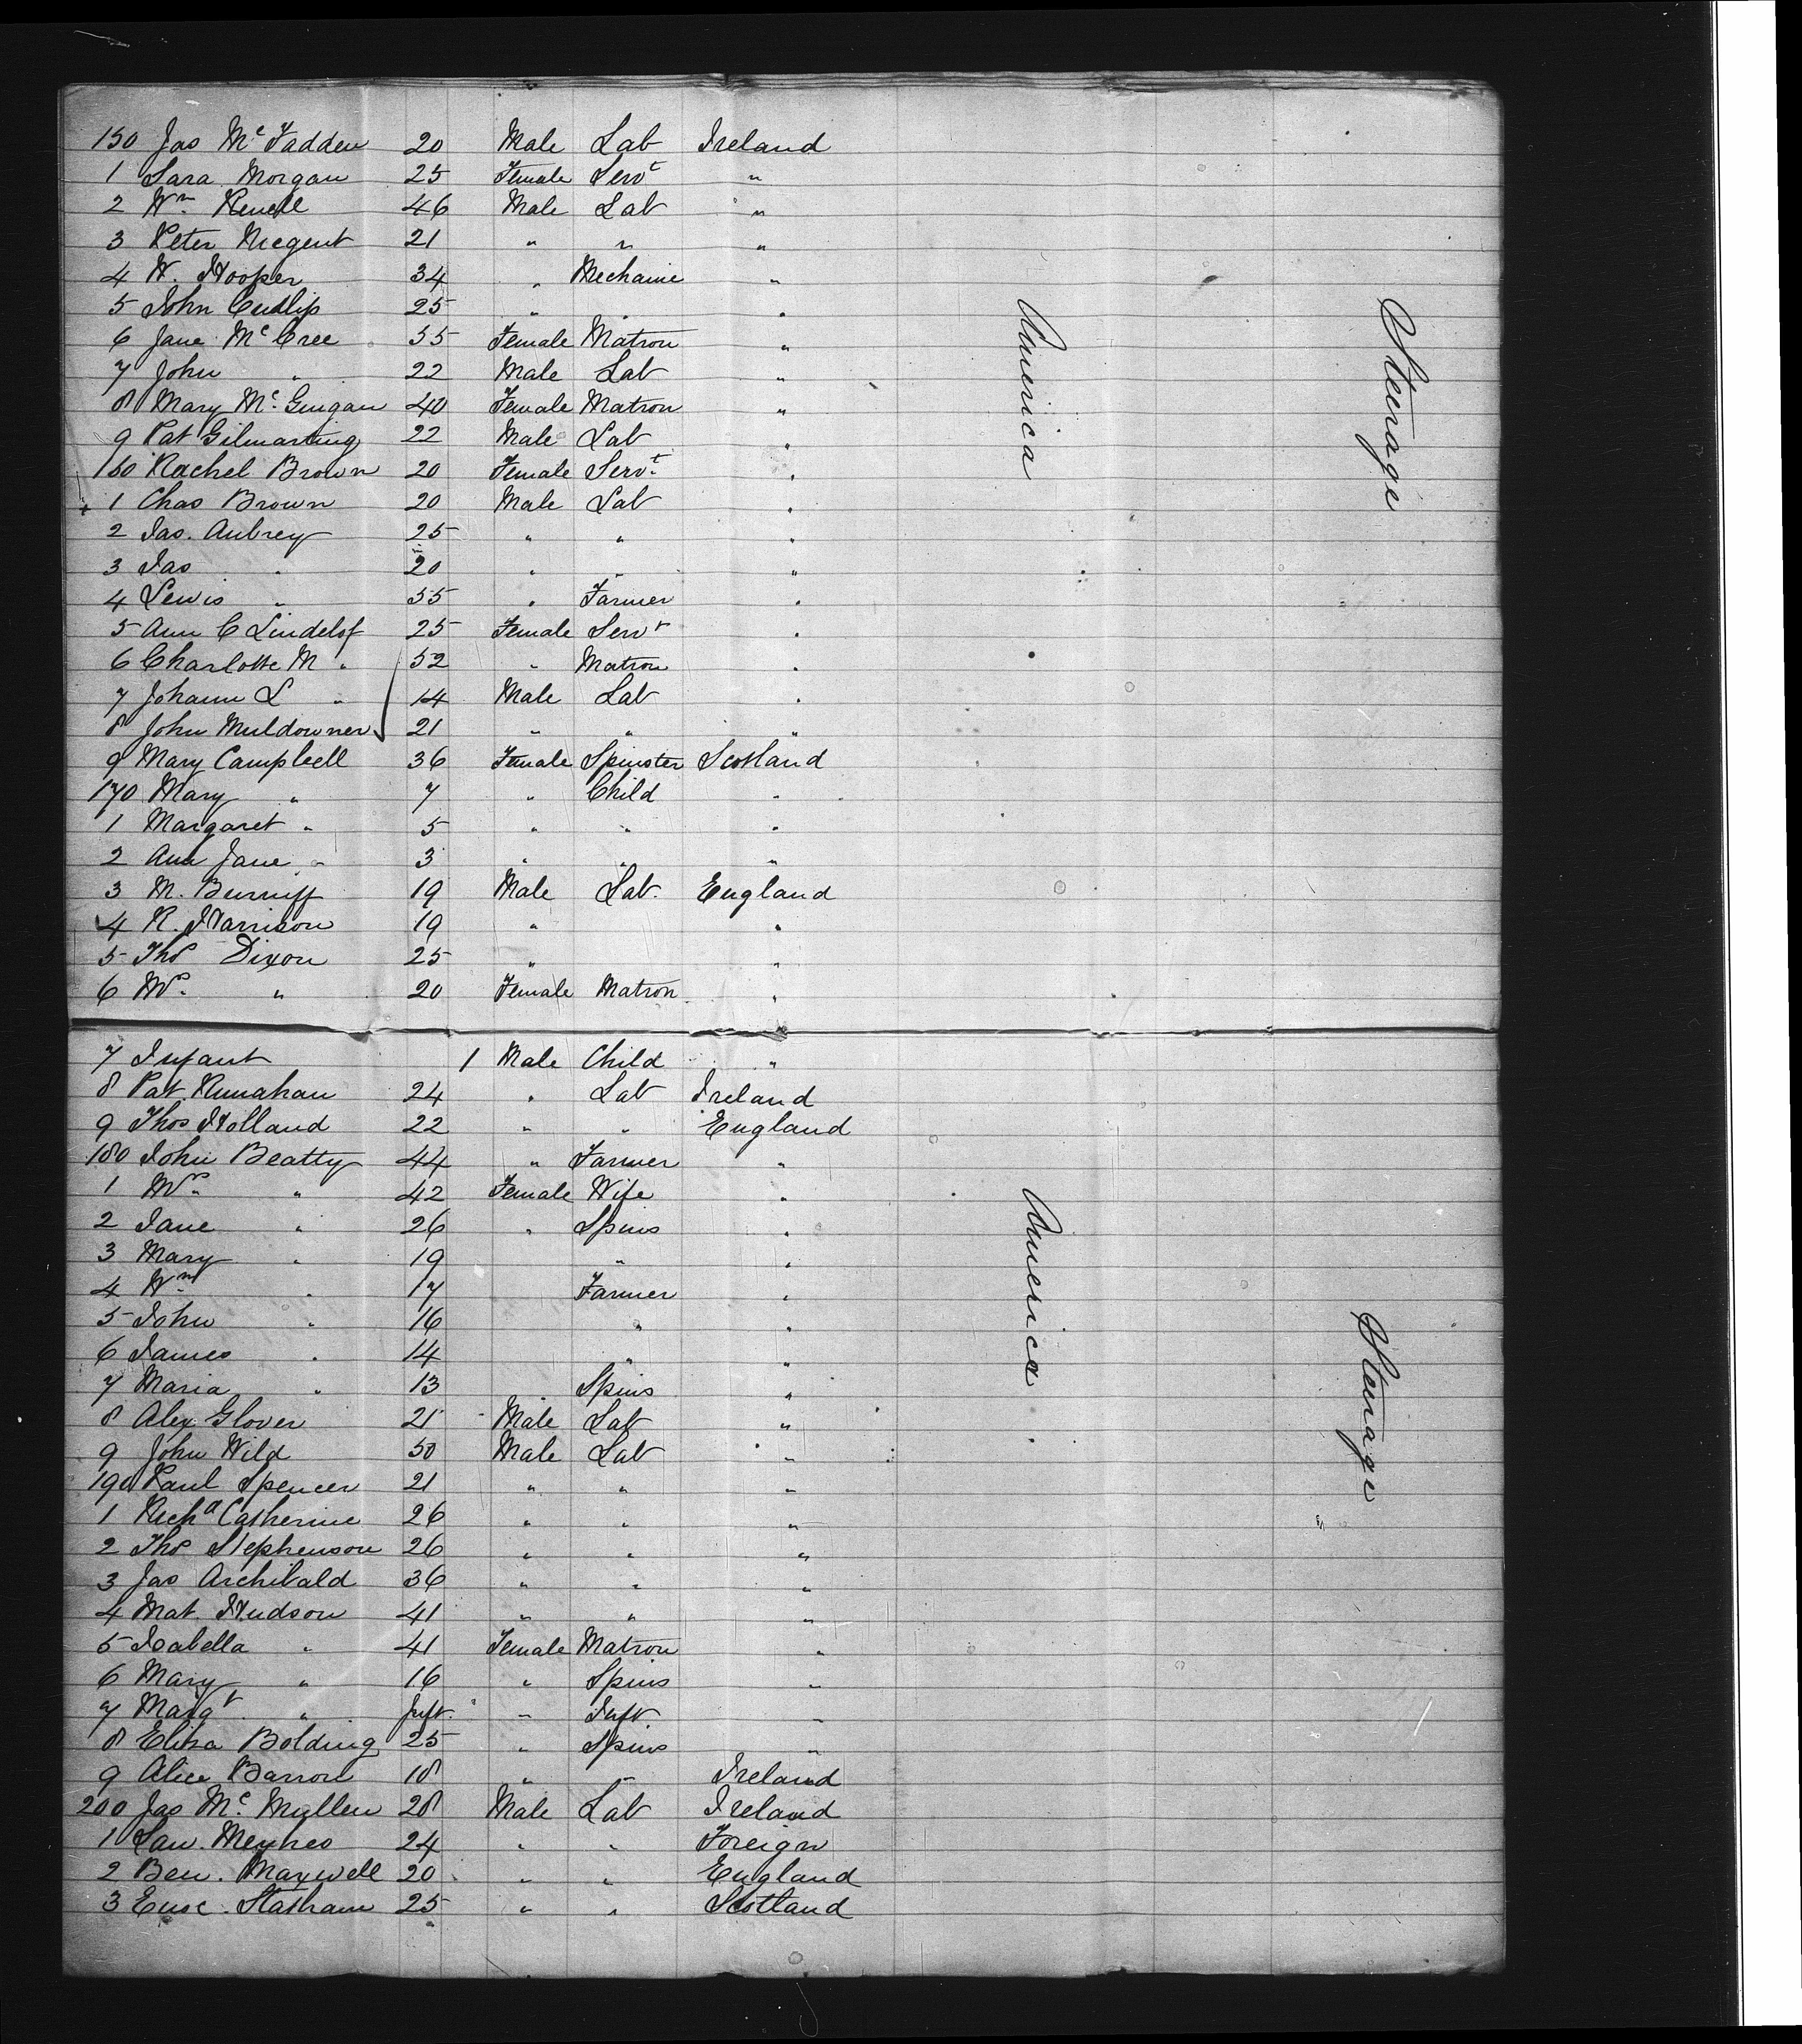 150 Jas McFadden 20 Male Lab Ireland
1 Sara Morgan 25 Female Servt "
2 Wm 46 Male Lab "
3 Peter 21 " " "
4 W. Hooper 34 " Mechanic "
5 John Cudlip 25 " " "
6 Jane McCree 55 Female Matron "
7 John " 22 Male Lab "
8 Mary McGuigan 40 Female Matron "
9 Pat Gilmarting 22 Male Lab "
160 Rachel Brown 20 Female Servt "
1 Chas Brown 20 Male Lab "
2 Jas. Aubrey 25 " " "
3 Jas " 20 " " "
4 Lewis " 55 " Farmer "
5 Ann C Lindelof 25 Female Servt "
6 Charlotte M " 52 " Matron "
7 Johann L " 14 Male Lab "
8 John Muldowner 21 " " "
9 Mary Campbell 36 Female Spinster Scotland
170 Mary " 7 " Child "
1 Margaret " 5 " " "
2 Ann Jane " 3 " " "
3 M. 19 Male Lab. England
4 R. Harrison 19 " "
5 Thos Dixon 25 " "
6 Mrs " 20 Female Matron "
America
Steerage
7 Infant 1 Male Child "
8 Pat 24 " Lab Ireland
9 Thos Holland 22 " " England
180 John Beatty 44 " Farmer "
1 Mrs " 42 Female Wife "
2 Jane " 26 " Spins "
3 Mary " 19 " "
4 Wm " 17 Farmer "
5 John " 16 " "
6 James " 14 " "
7 Maria " 13 Spins "
8 Alex Glover 21 Male Lab "
9 John Wild 50 Male Lab "
190 Paul Spencer 21 " " "
1 Richd Catherine 26 " " "
2 Thos Stephenson 26 " " "
3 Jas Archibald 36 " " "
4 Mat. Hudson 41 " " "
5 Isabella " 41 Female Matron "
6 Mary " 16 " Spins "
7 Margt " Inft. " Inft "
8 Eliza Bolding 25 " Spins "
9 Alice Barron 18 " " Ireland
200 Jas McMullen 28 Male Lab Ireland
1 Law. 24 " " Foreign
2 Ben. Maxwell 20 " " England
3 Statham 25 " " Scotland
America
Steerage